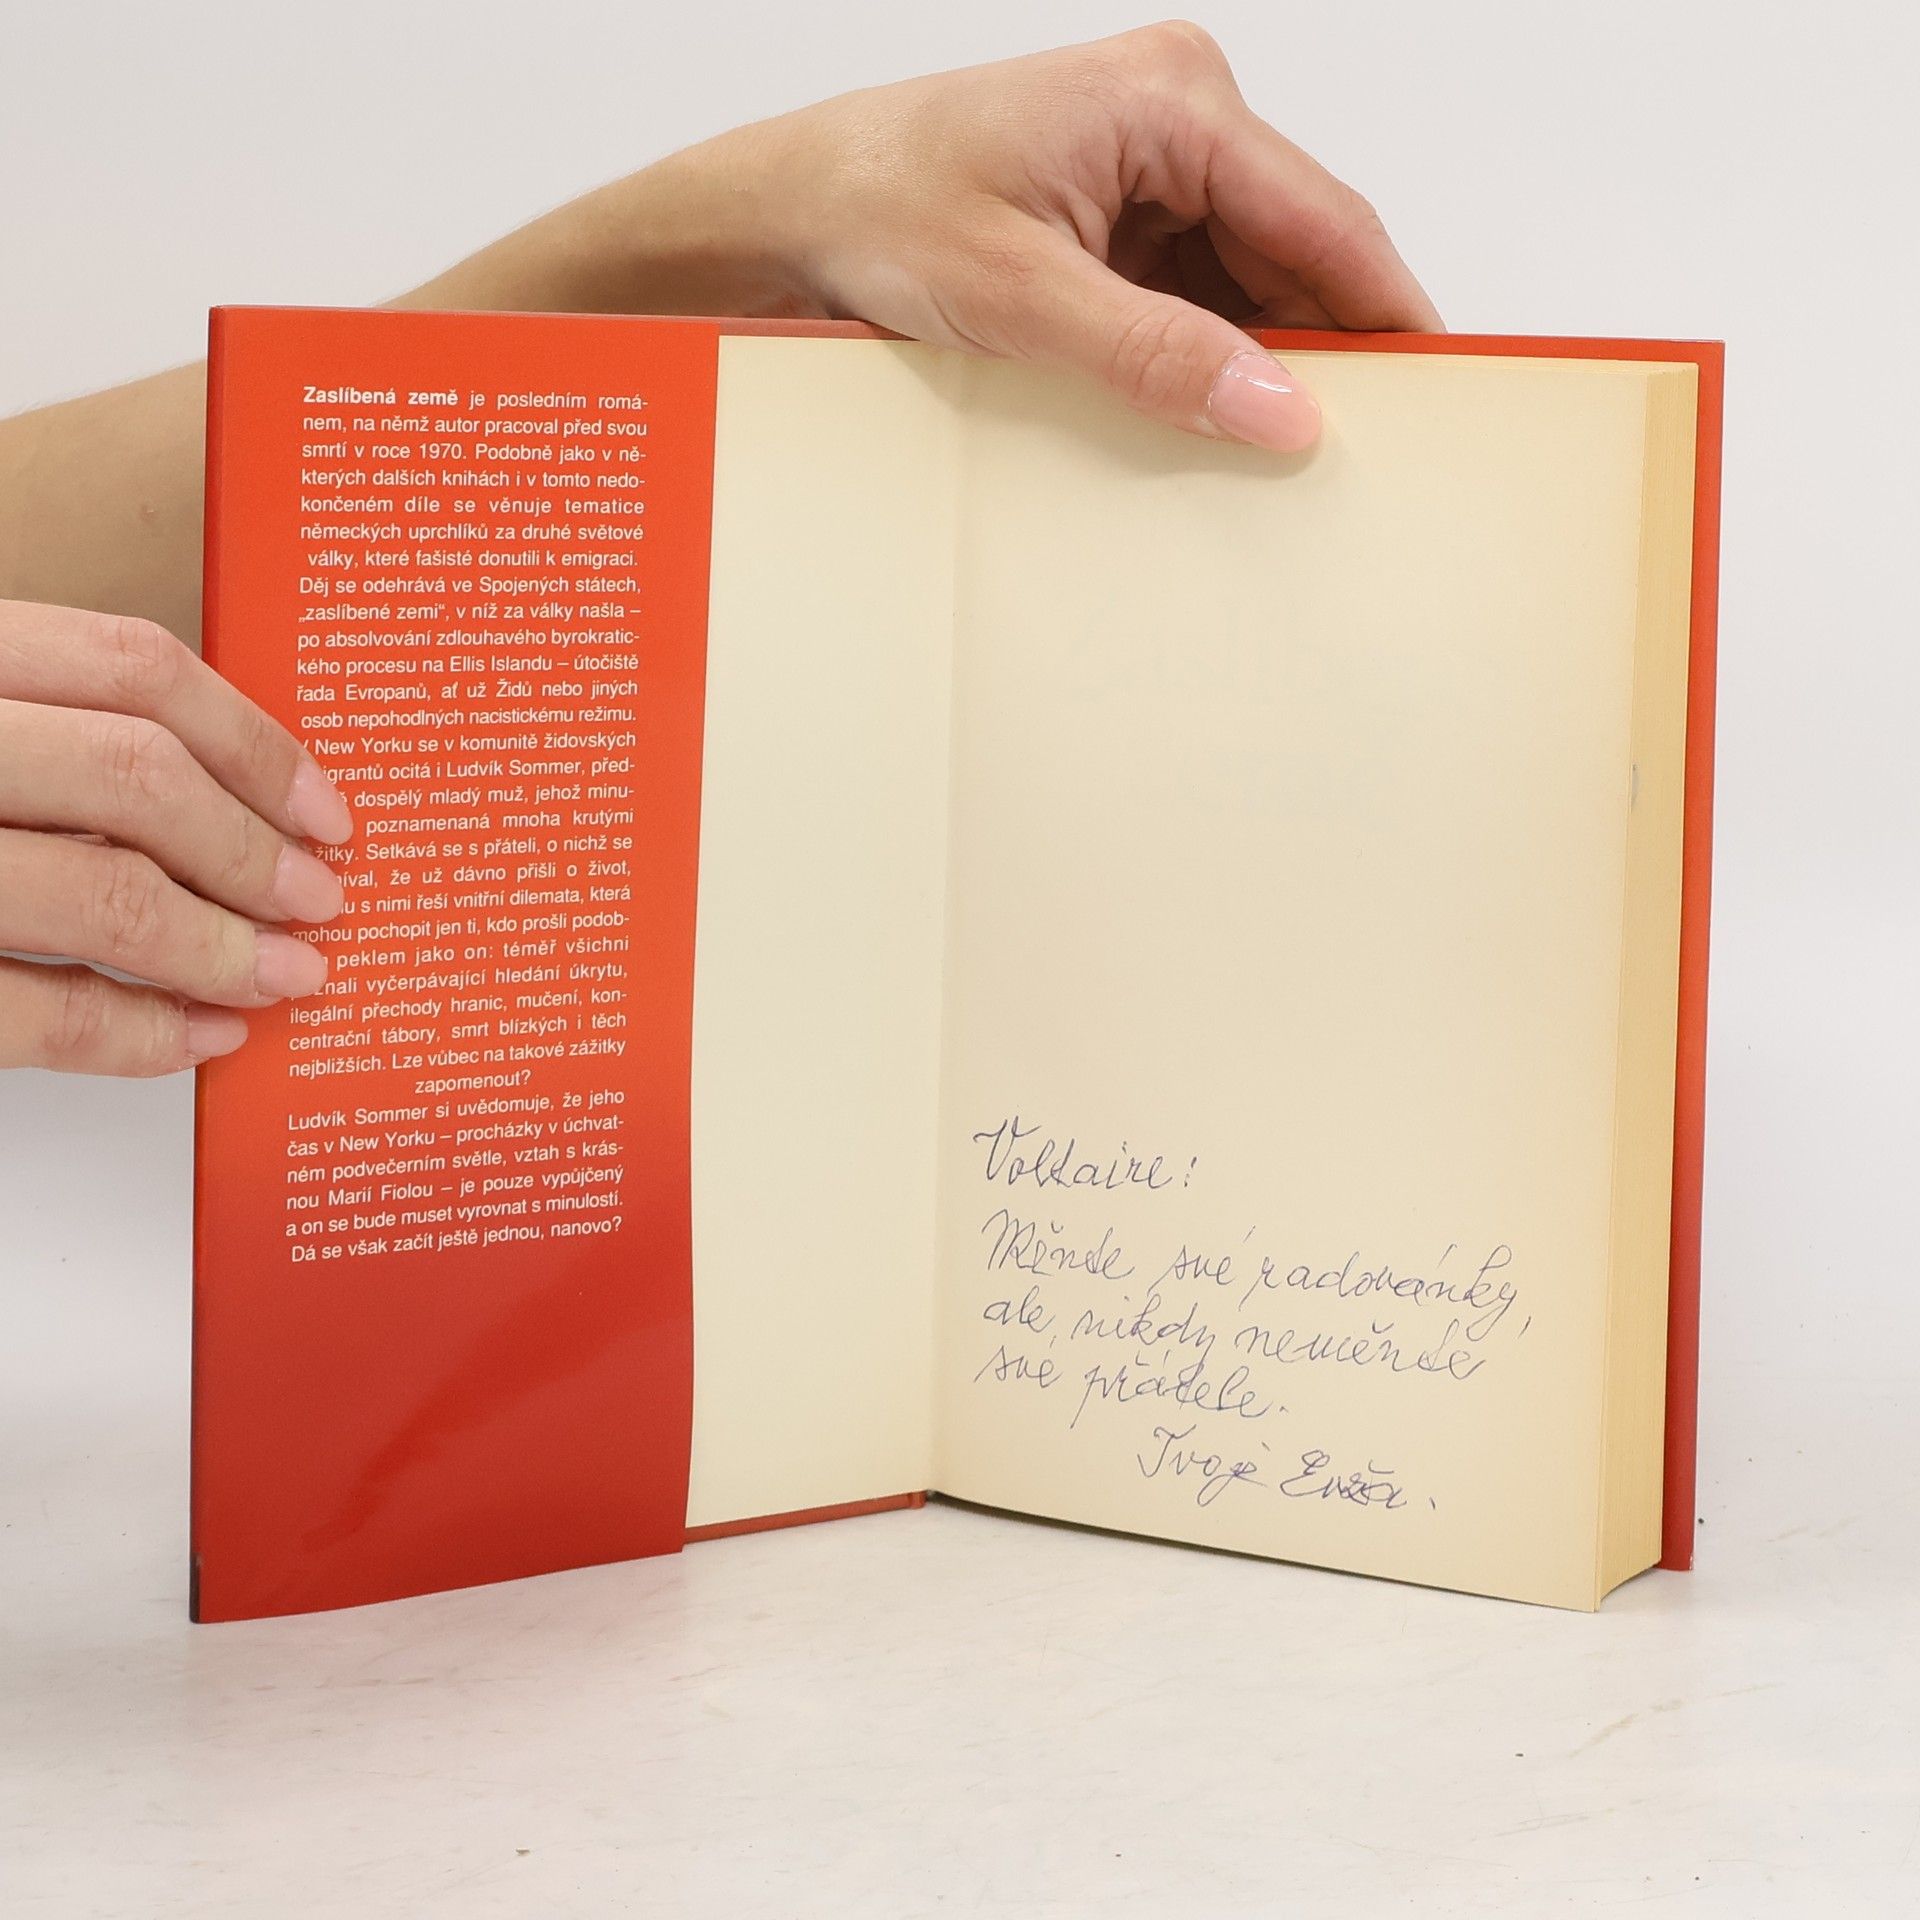 Zaslíbená země je posledním romá-
nem, na němž autor pracoval před svou
smrtí v roce 1970. Podobně jako v ně-
kterých dalších knihách i v tomto nedo-
končeném díle se věnuje tematice
německých uprchlíků za druhé světové
války, které fašisté donutili k emigraci.
Děj se odehrává ve Spojených státech,
„zaslíbené zemi“, v níž za války našla –
po absolvování zdlouhavého byrokratic-
kého procesu na Ellis Islandu – útočiště
řada Evropanů, ať už Židů nebo jiných
osob nepohodlných nacistickému režimu.
V New Yorku se v komunitě židovských
igrantů ocitá i Ludvík Sommer, před-
dospělý mladý muž, jehož minu-
poznamenaná mnoha krutými
žitky. Setkává se s přáteli, o nichž se
níval, že už dávno přišli o život,
s nimi řeší vnitřní dilemata, která
mohou pochopit jen ti, kdo prošli podob-
peklem jako on: téměř všichni
znali vyčerpávající hledání úkrytu,
ilegální přechody hranic, mučení, kon-
centrační tábory, smrt blízkých i těch
nejbližších. Lze vůbec na takové zážitky
zapomenout?
Ludvík Sommer si uvědomuje, že jeho
čas v New Yorku – procházky v úchvat-
ném podvečerním světle, vztah s krás-
nou Marií Fiolou – je pouze vypůjčený
a on se bude muset vyrovnat s minulostí.
Dá se však začít ještě jednou, nanovo?
Voltaire:
Měnte své radovánky,
ale nikdy neměnte
své přátele.
Tvoje Evža.